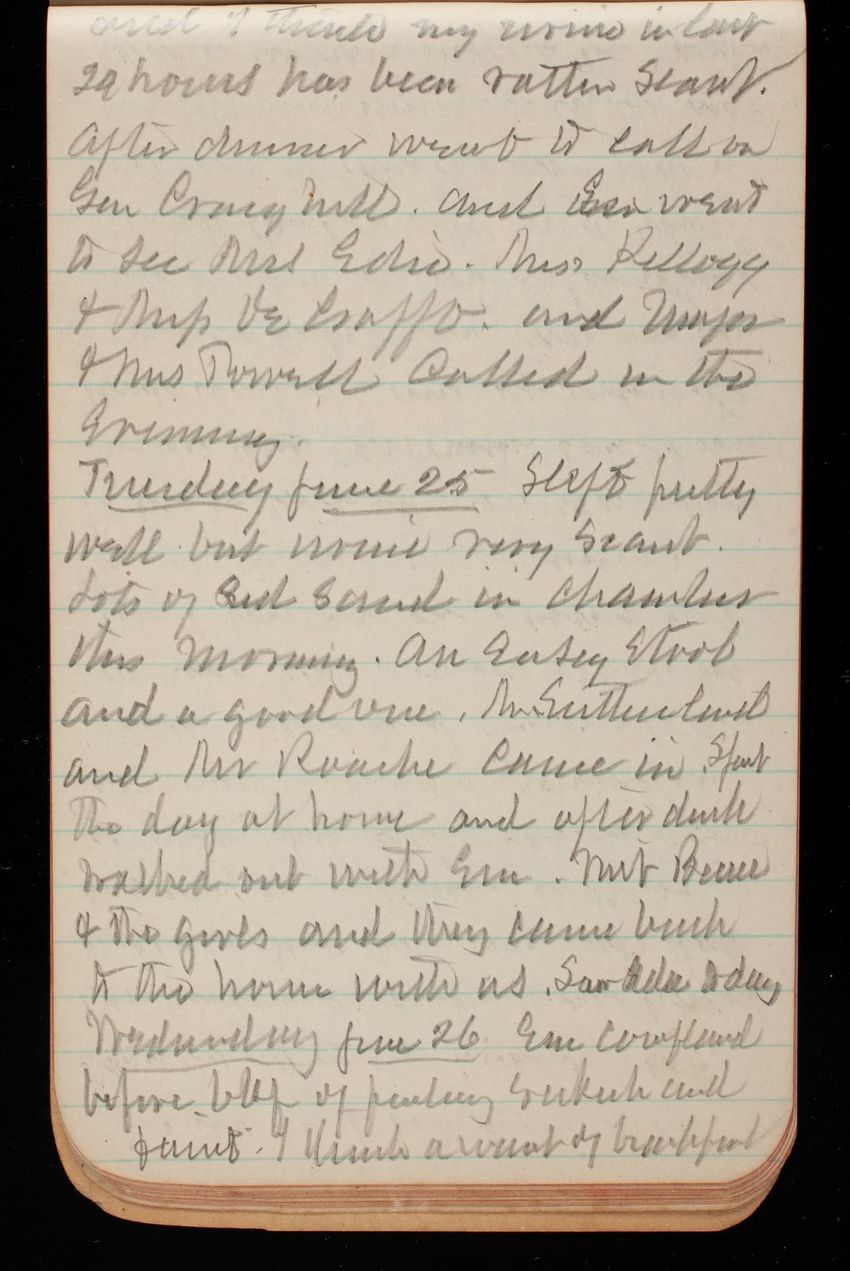 and I think my urine in last
24 hours has been rather scant.
After dinner went to call on
Gen Craighill. and Em went
to see Mrs Edie. Miss Kellogg
& Miss De Crafft. and Major
& Mrs Powell called in the
Evening.
Tuesday June 25 Slept pretty
well but urine very scant.
Lots of Red Sand in chamber
this morning. An Easy Stool
and a good one. Mr Sutherland
and Mr Roache came in. Spent
the day at home and after dark
walked out with Em. Met Bruce
& the girls and they came back
to the house with us. Saw Ada today
Wednesday June 26 Em complained
before of feeling sickish and
faint. I think a want of breakfast